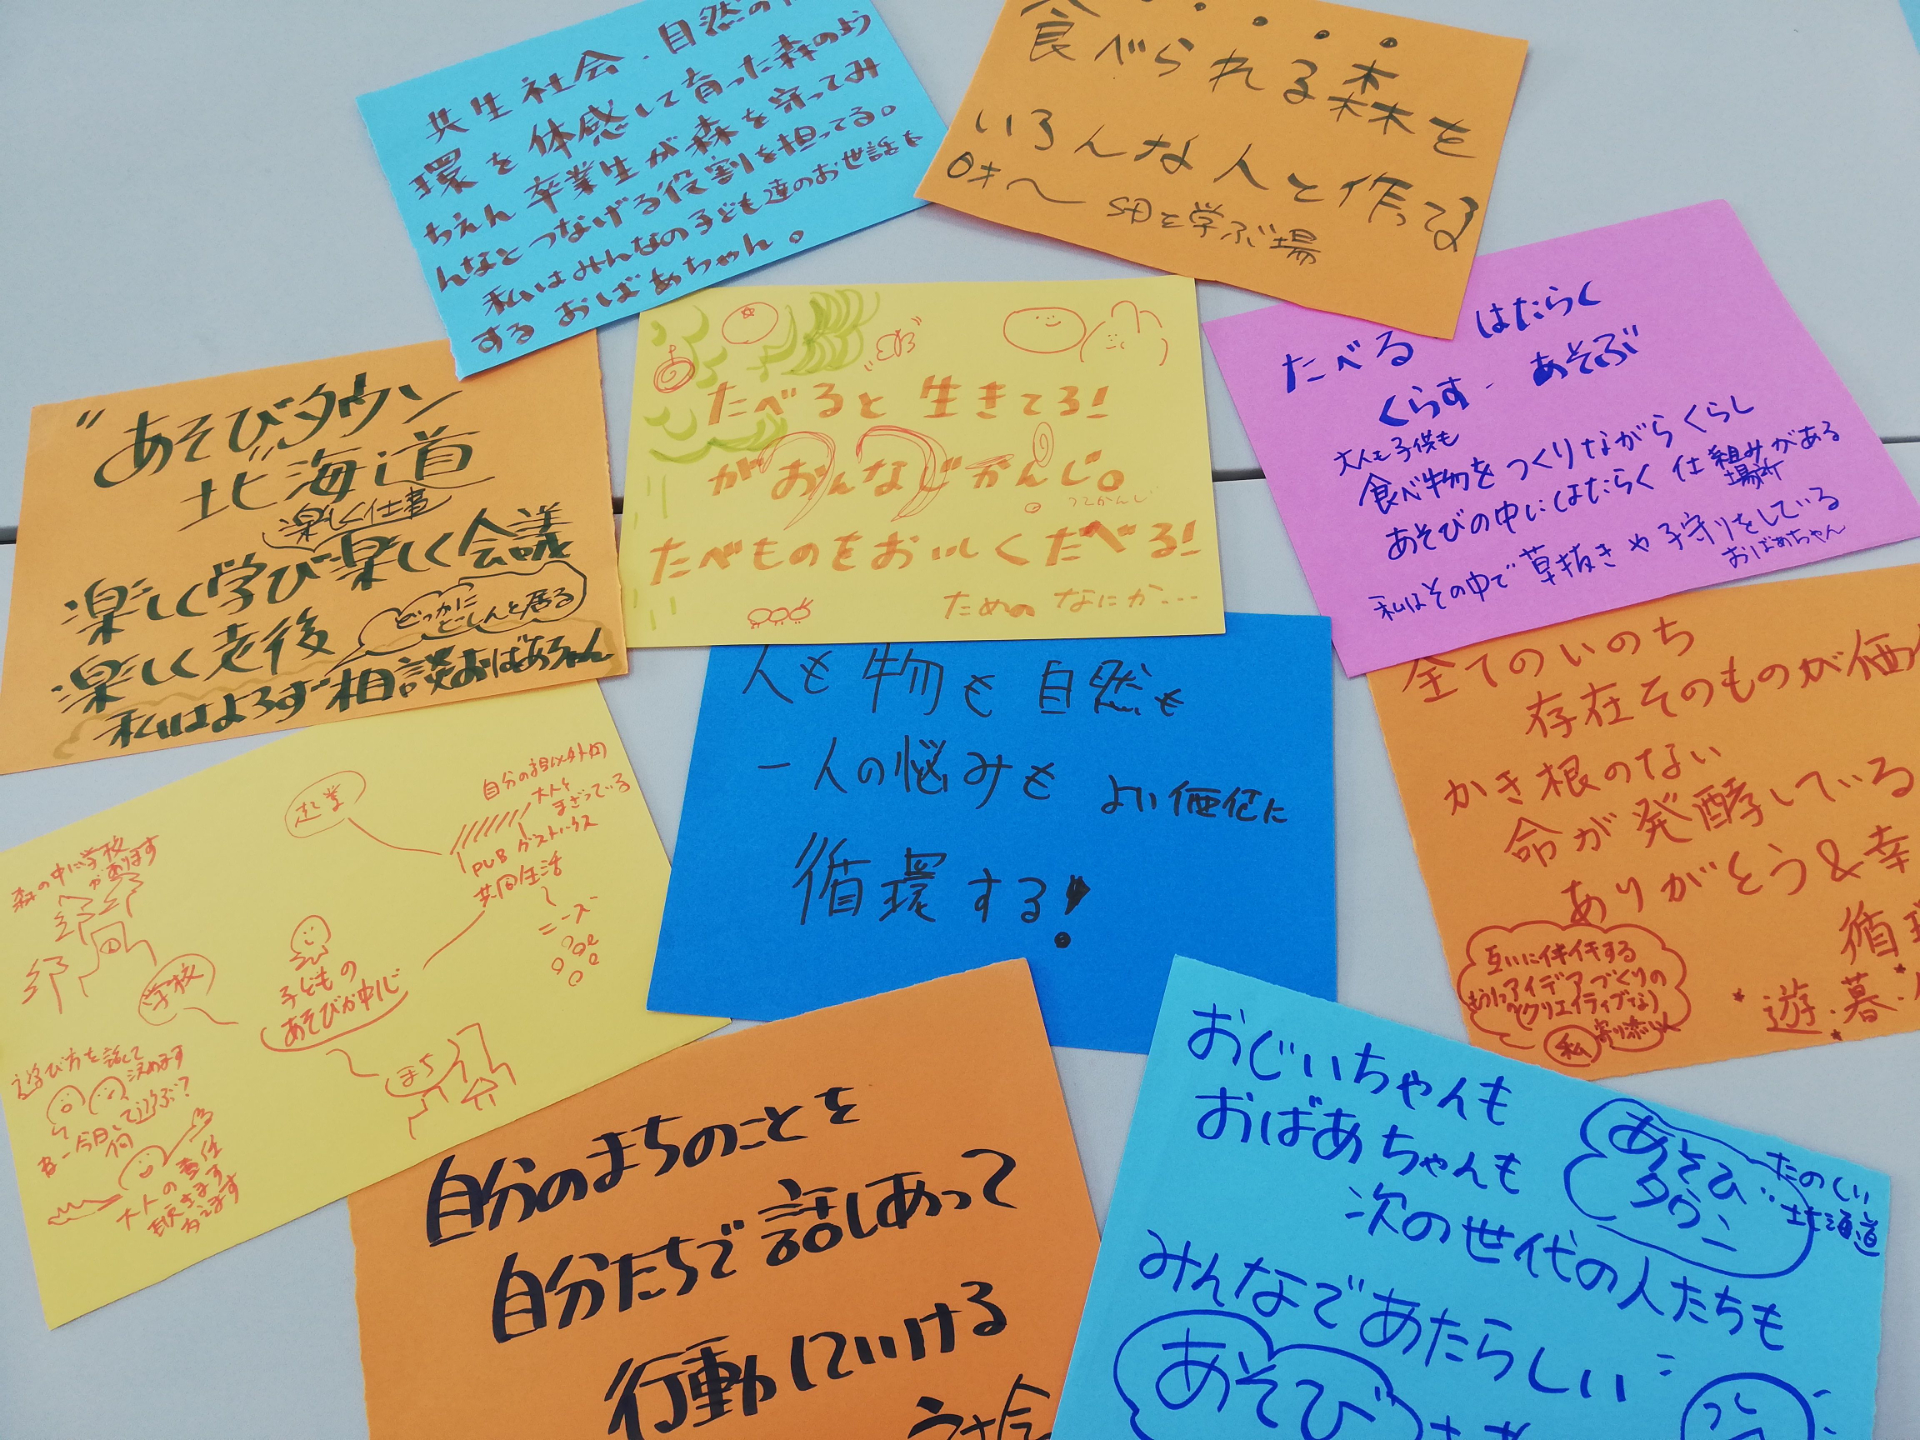 共生社会・自然の
環を体感して育った森のよう
ちえん卒業生が森を守ってみ
んなとつなげる役割を担ってる。
私はみんなの子ども達のお世話を
するおばあちゃん。
食べられる森を
いろんな人と作ってる
0才〜 SDを学ぶ場
たべる はたらく
くらす・あそぶ
大人も子供も
食べ物をつくりながらくらし
あそびの中にはたらく仕組みがある
場所
私はその中で草抜きや子守りをしている
おばあちゃん
"あそびタウン
北海道
楽しく仕事
楽しく学び楽しく会議
楽しく老後
どっかに
どーしんと居る
私はよろず相談おばあちゃん
たべると生きてる!
がおんなじかんじ。
ってかんじ
たべものをおいしくたべる!
ための なにか…
人も物も自然も
一人の悩みも よい価値に
循環する!
全てのいのち
存在そのものが価
かき根のない
命が発酵している
ありがとう&幸
循環
遊・暮・
互いにイキイキする
アイデアづくりの
(クリエイティブな)
私 寄り添い人
起業
自分の親以外の
大人も
まざっている
PUB ゲストハウス
共同生活
ニーズ
森の中に学校
があります
学校
子どもの
あそびが中心
まち
遊び方を話して
決めます
今日
何して遊ぶ?
大人の責任
聴きます
自分のまちのことを
自分たちで話しあって
行動していける
おじいちゃんも
おばあちゃんも
次の世代の人たちも
みんなであたらしい
あそび
あそび
タウン
たのしい
北海道